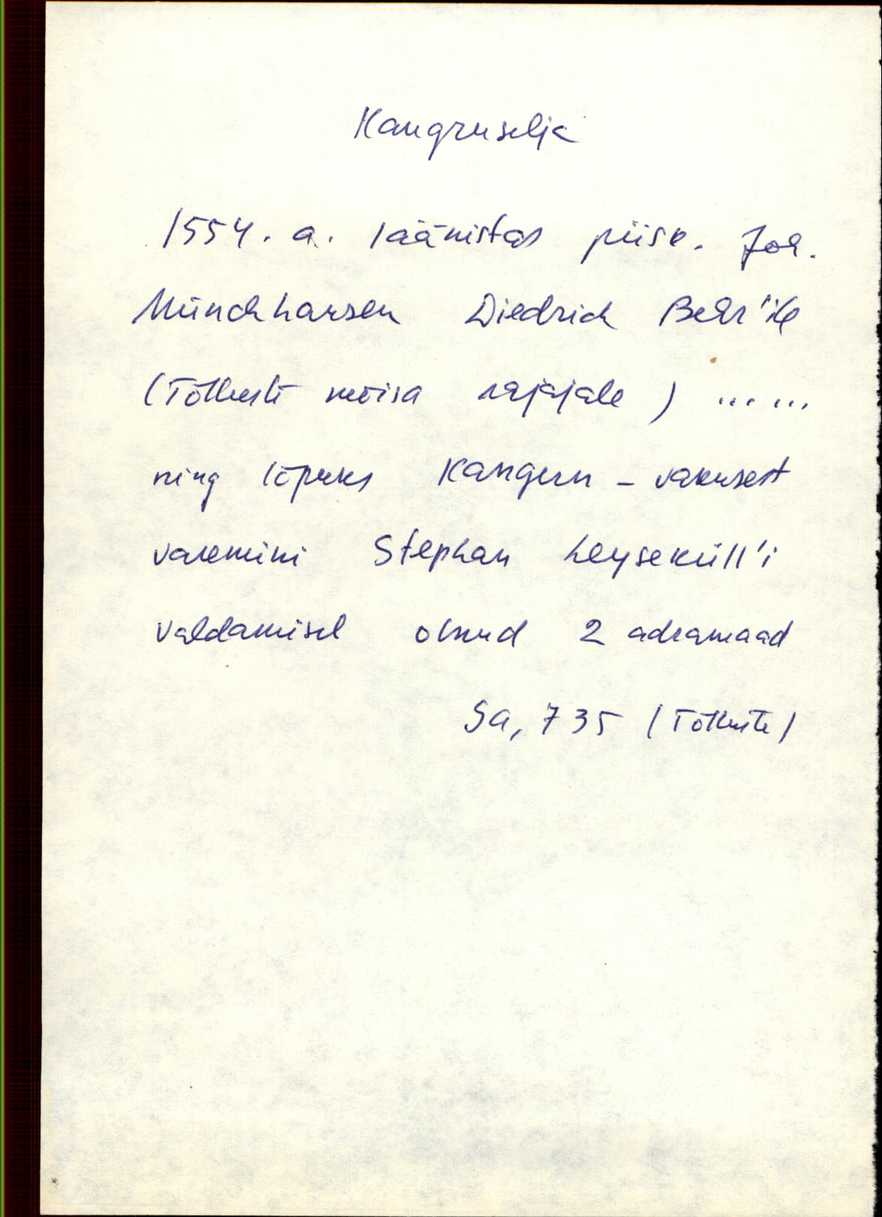 Kangruselja
1554. a. läänistas piisk. Joh.
Münchhausen Diedrich Behr'ile
(Tõlluste mõisa rajajale) ......
ning lõpuks Kangern - vakusest
varemini Stephan Leyseküll'i
valdamisel olnud 2 adramaad
Sa, 735 (Tõlluste)